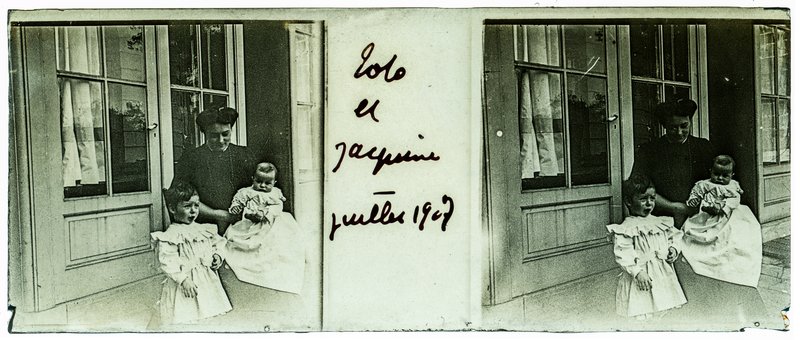 Lolo
et
Jacqueline
juillet 1907